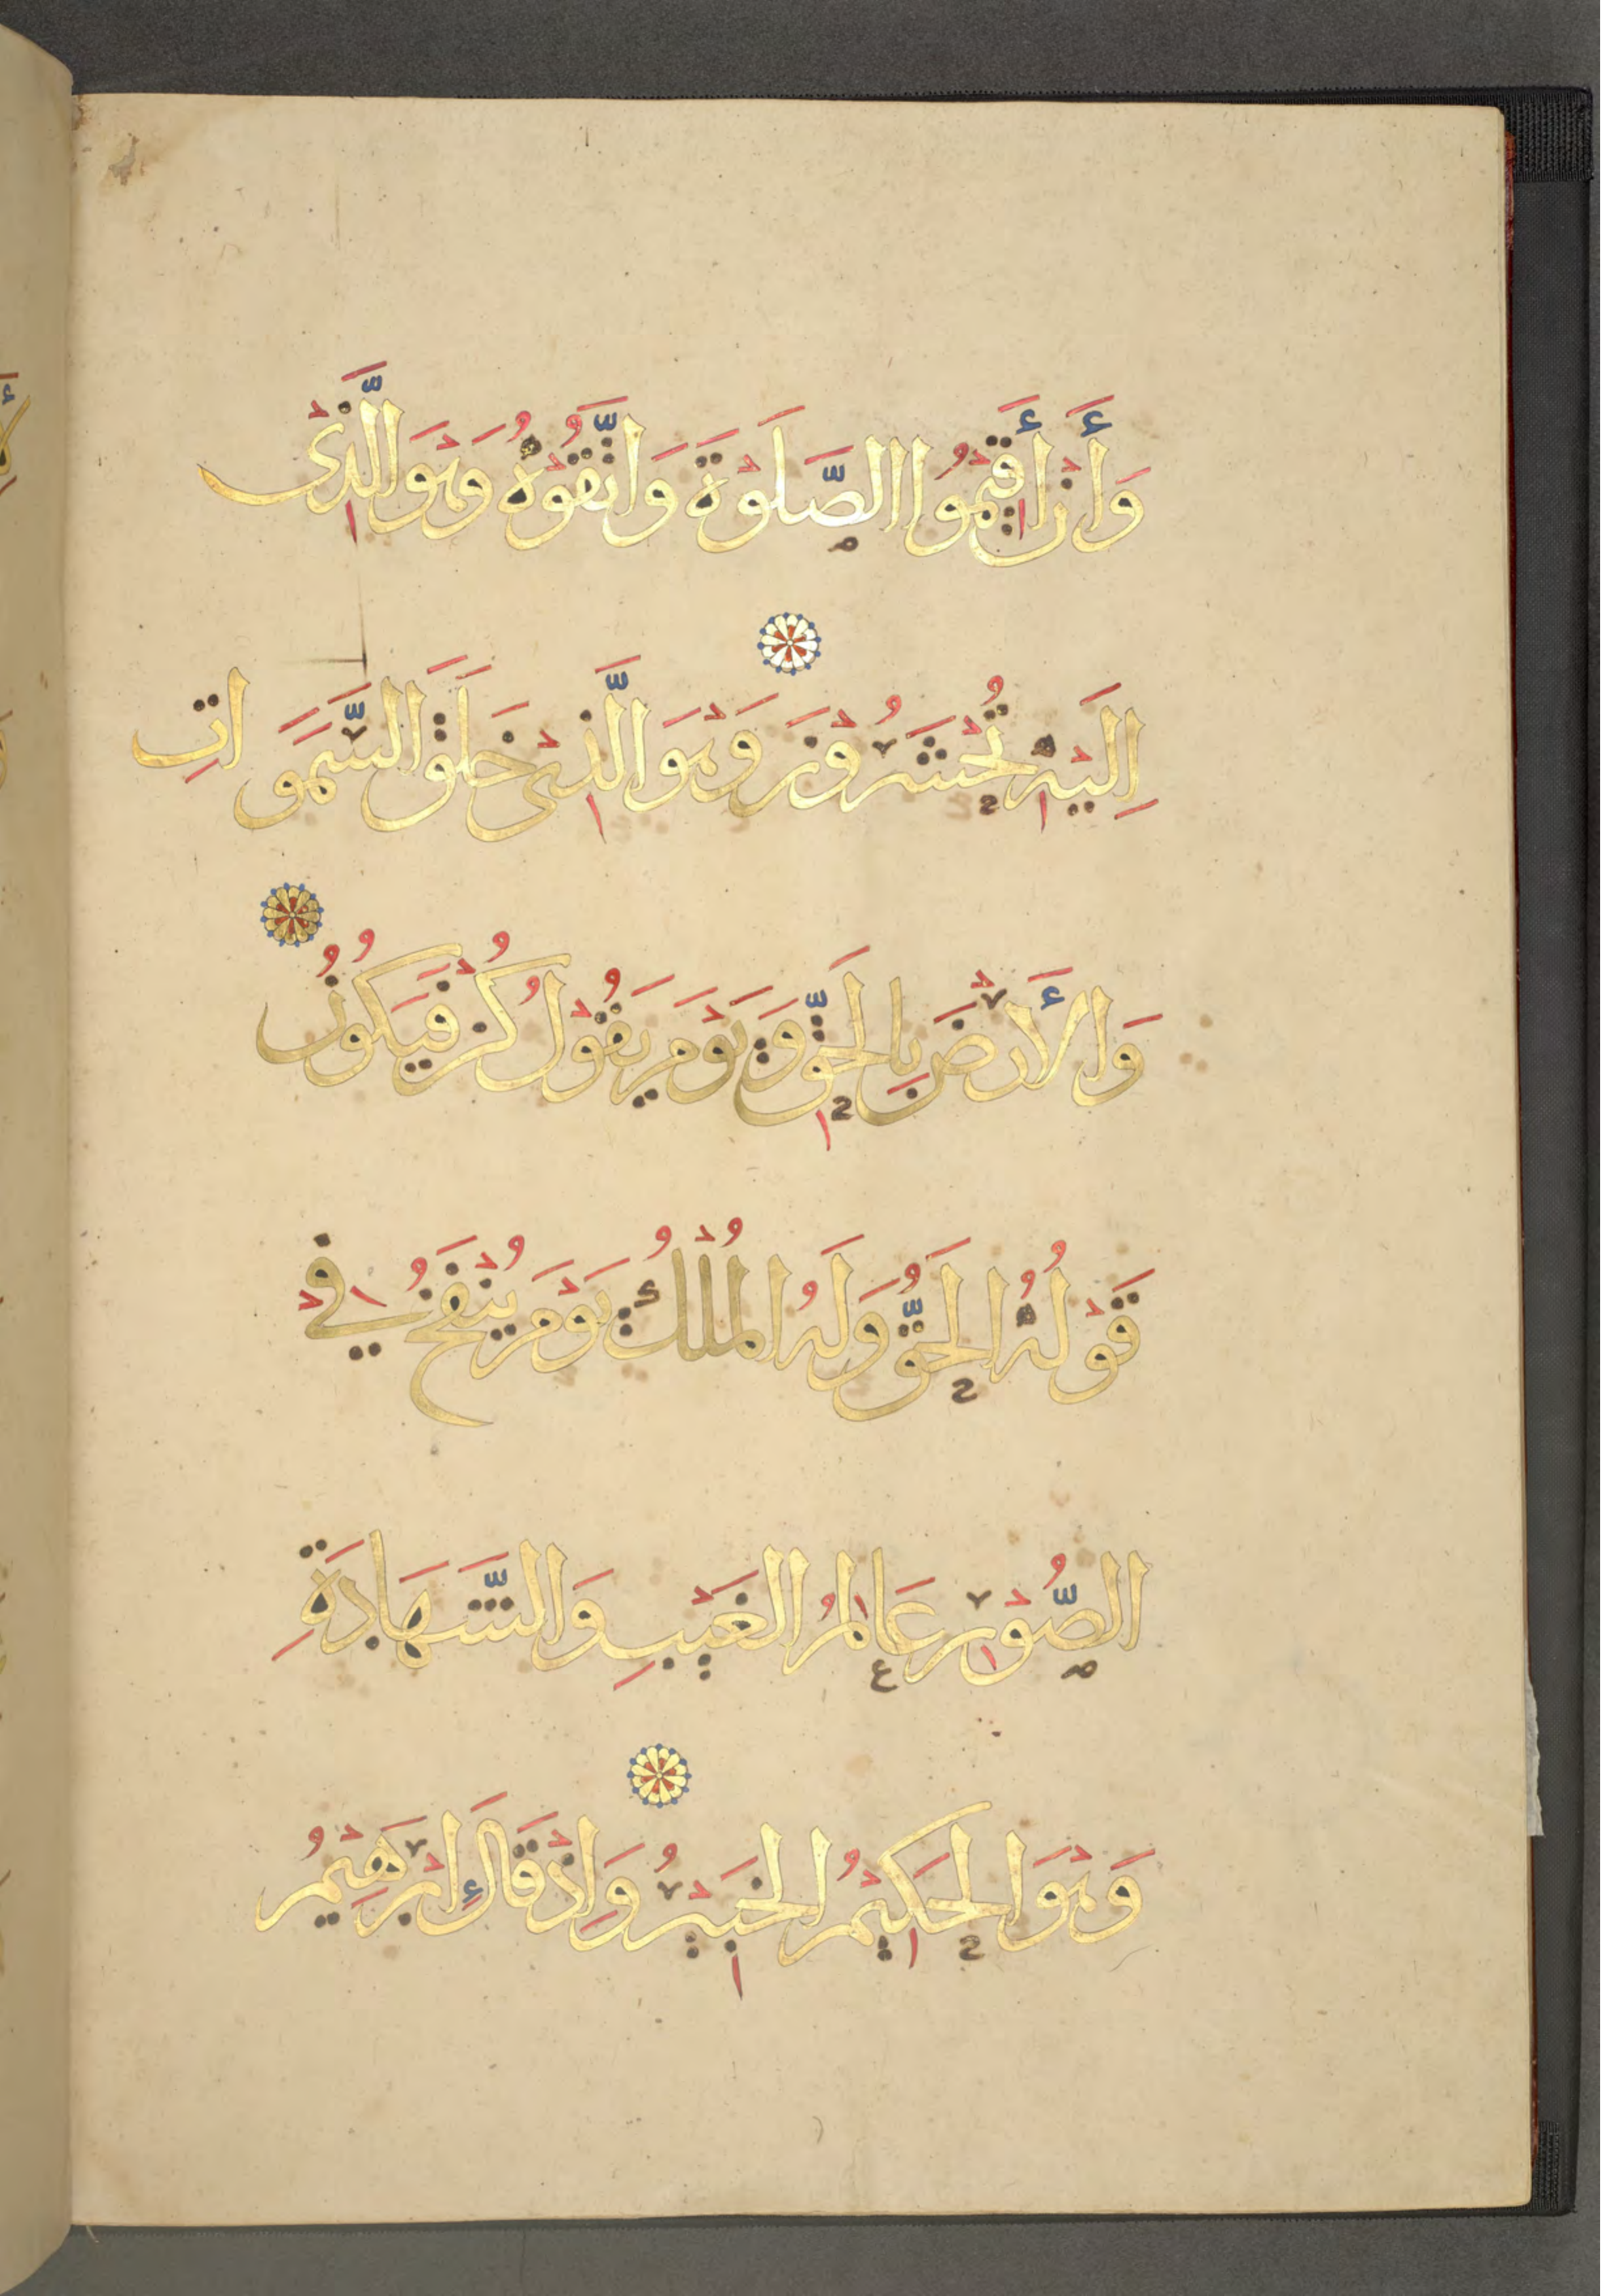 وَأَنْ أَقِيمُوا الصَّلَوٰةَ وَاتَّقُوهُ وَهْوَ الَّذِي
إِلَيْهِ تُحْشَرُونَ وَهْوَ الَّذِي خَلَقَ السَّمَوَاتِ
وَالْأَرْضَ بِالْحَقِّ وَيَوْمَ يَقُولُ كُنْ فَيَكُونُ
قَوْلُهُ الْحَقُّ وَلَهُ الْمُلْكُ يَوْمَ يُنْفَخُ فِي
الصُّورِ عَالِمُ الْغَيْبِ وَالشَّهَادَةِ
وَهْوَ الْحَكِيمُ الْخَبِيرُ وَإِذْ قَالَ إِبْرَهِيمُ